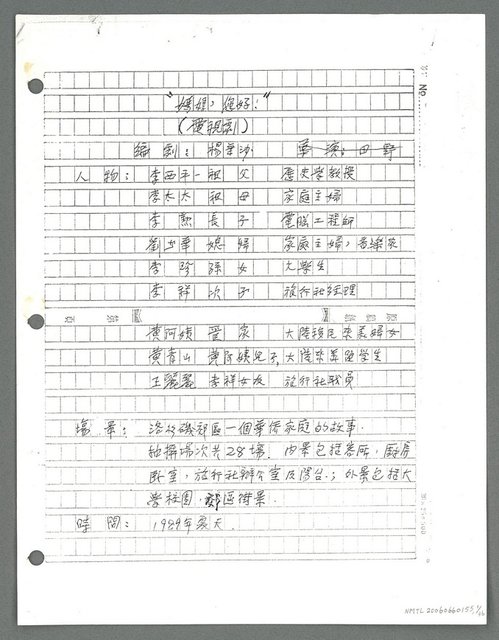 No.
"媽媽，您好！"
(電視劇)
編劇：楊 導演：田野
人物：李西平—祖父 歷史學教授
李太太 祖母 家庭主婦
李 長子 電腦工程師
劉少華 媳婦 家庭主婦，音樂家
李玲 孫女 大學生
李祥 次子 旅行社經理
黃阿姨 管家 大陸移民來美婦女
黃青山 黃阿姨兒子，大陸來美留學生
王麗麗 李祥女友 旅行社職員
場景：洛杉磯郊區一個華僑家庭的故事.
拍攝場次共28場. 內景包括客廳，廚房
臥室，旅行社辦公室及陽台；外景包括大
學校園，郊區街景.
時間：1989年夏天.
NMTL20060660155